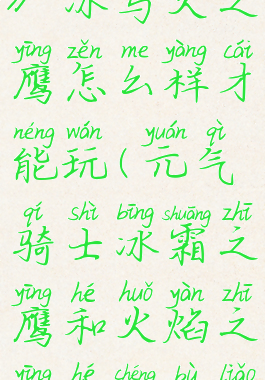 yīng zěn me yàng cái
鹰怎么样才
néng wán yuán qì
能玩(元气
qí shì bīng shuāng zhī
骑士冰霜之
yīng hé huǒ yàn zhī
鹰和火焰之
yīng hé chéng bù liǎo